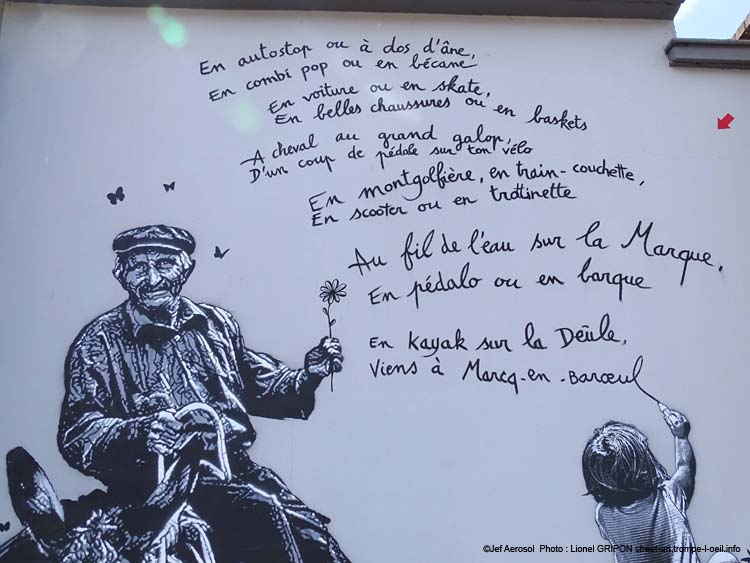 En autostop ou à dos d'âne,
En combi pop ou en bécane,
En voiture ou en skate,
En belles chaussures ou en baskets
A cheval au grand galop,
D'un coup de pédale sur ton vélo
En montgolfière, en train-couchette,
En scooter ou en trottinette
Au fil de l'eau sur la Marque,
En pédalo ou en barque
En Kayak sur la Deûle,
Viens à Marcq-en-Barœul
©Jef Aerosol Photo : Lionel GRIPON street-art.trompe-l-oeil.info